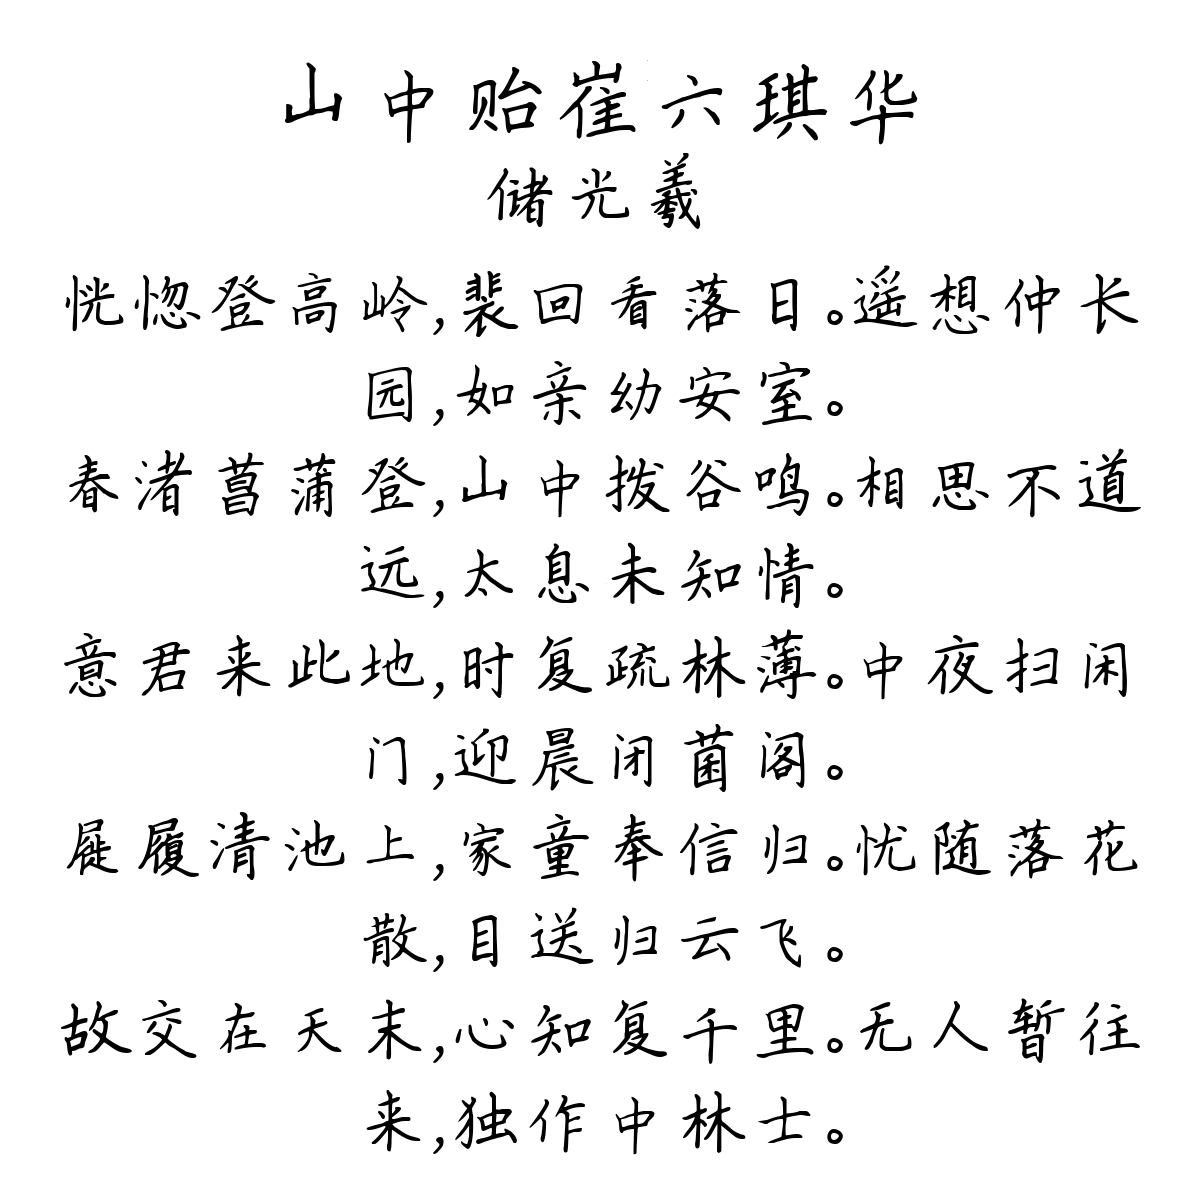 山中贻崔六琪华
储光羲
恍惚登高岭,裴回看落日。遥想仲长
园,如亲幼安室。
春渚菖蒲登,山中拨谷鸣。相思不道
远,太息未知情。
意君来此地,时复疏林薄。中夜扫闲
门,迎晨闭菌阁。
屣履清池上,家童奉信归。忧随落花
散,目送归云飞。
故交在天末,心知复千里。无人暂往
来,独作中林士。